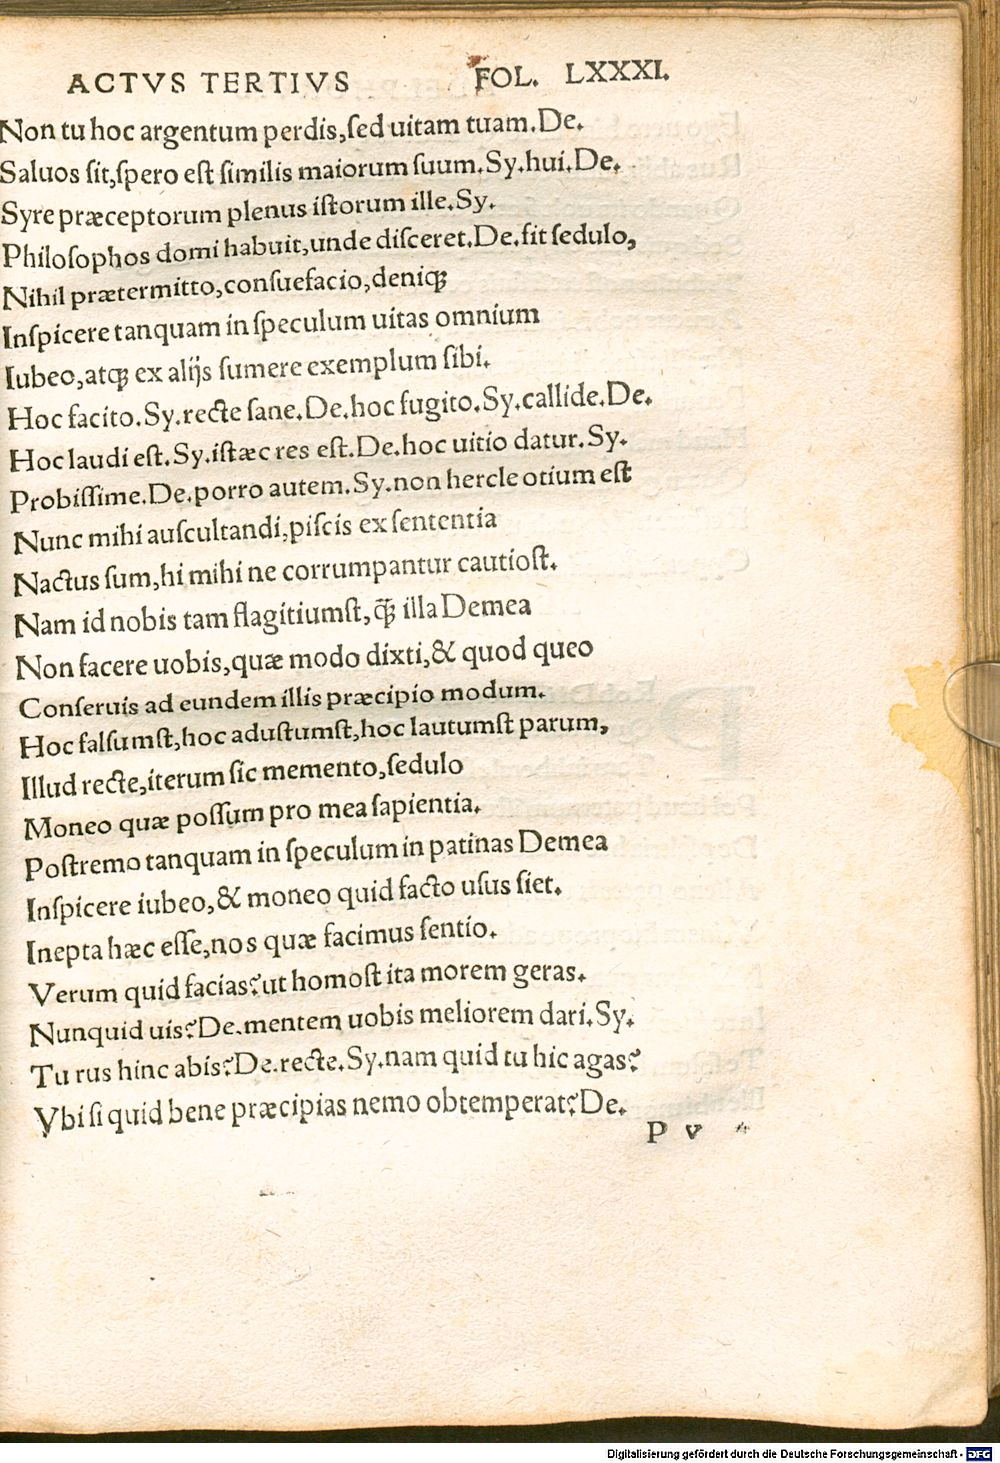 ACTVS TERTIVS FOL. LXXXI.
Non tu hoc argentum perdis,ſed uitam tuam.De.
Saluos ſit,ſpero eſt ſimilis maiorum ſuum.Sy.hui.De.
Syre præceptorum plenus iſtorum ille.Sy.
Philoſophos domi habuit,unde diſceret.De.fit ſedulo,
Nihil prætermitto,conſuefacio,deniqꝫ
Inſpicere tanquam in ſpeculum uitas omnium
Iubeo,atqꝫ ex alijs ſumere exemplum ſibi.
Hoc facito.Sy.recte ſane.De.hoc fugito.Sy.callide.De.
Hoc laudi eſt.Sy.iſtæc res eſt.De.hoc uitio datur.Sy.
Probiſſime.De.porro autem.Sy.non hercle otium eſt
Nunc mihi auſcultandi,piſcis ex ſententia
Nactus ſum,hi mihi ne corrumpantur cautioſt.
Nam id nobis tam flagitiumſt,q̃ꝫ illa Demea
Non facere uobis,quæ modo dixti,& quod queo
Conſeruis ad eundem illis præcipio modum.
Hoc falſumſt,hoc aduſtumſt,hoc lautumſt parum,
Illud recte,iterum ſic memento,ſedulo
Moneo quæ poſſum pro mea ſapientia.
Poſtremo tanquam in ſpeculum in patinas Demea
Inſpicere iubeo,& moneo quid facto uſus ſiet.
Inepta hæc eſſe,nos quæ facimus ſentio.
Verum quid facias?ut homoſt ita morem geras.
Nunquid uis?De.mentem uobis meliorem dari.Sy.
Tu rus hinc abis?De.recte.Sy.nam quid tu hic agas?
Vbi ſi quid bene præcipias nemo obtemperat?De.
P v
Digitalisierung gefördert durch die Deutsche Forschungsgemeinschaft - DFG